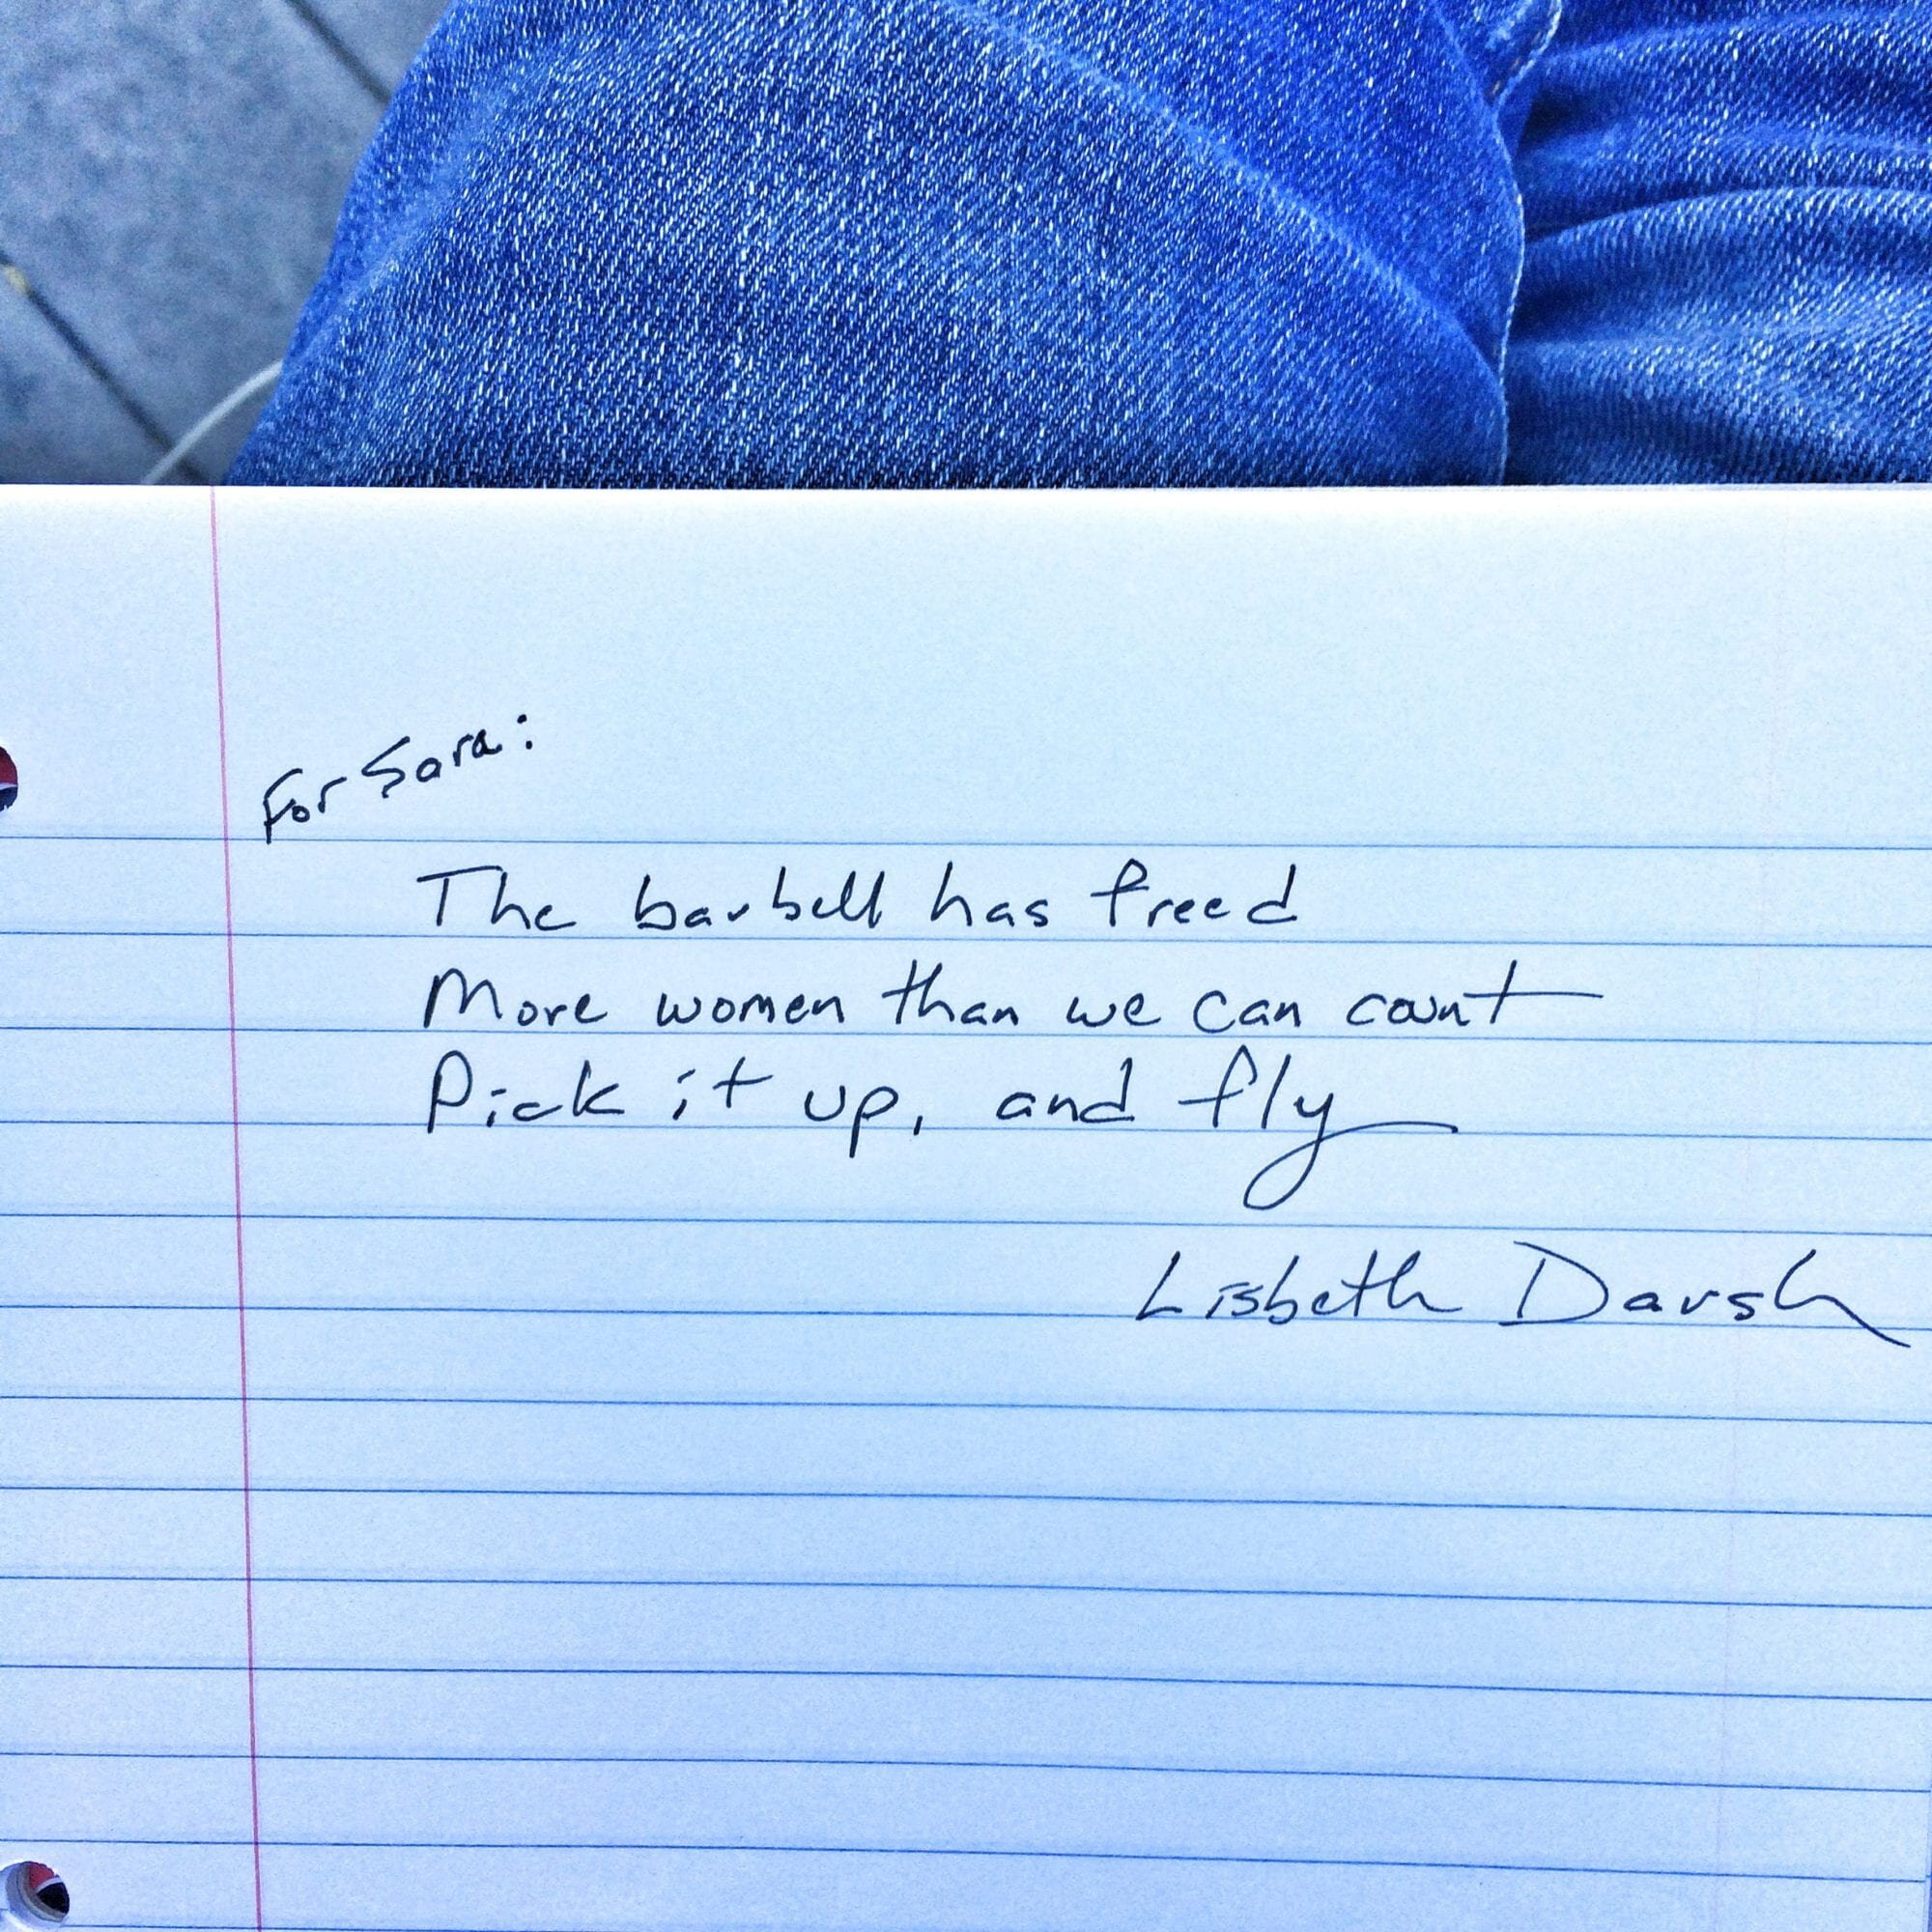 For Sara:
The barbell has freed
More women than we can count
Pick it up, and fly
Lisbeth Darsh